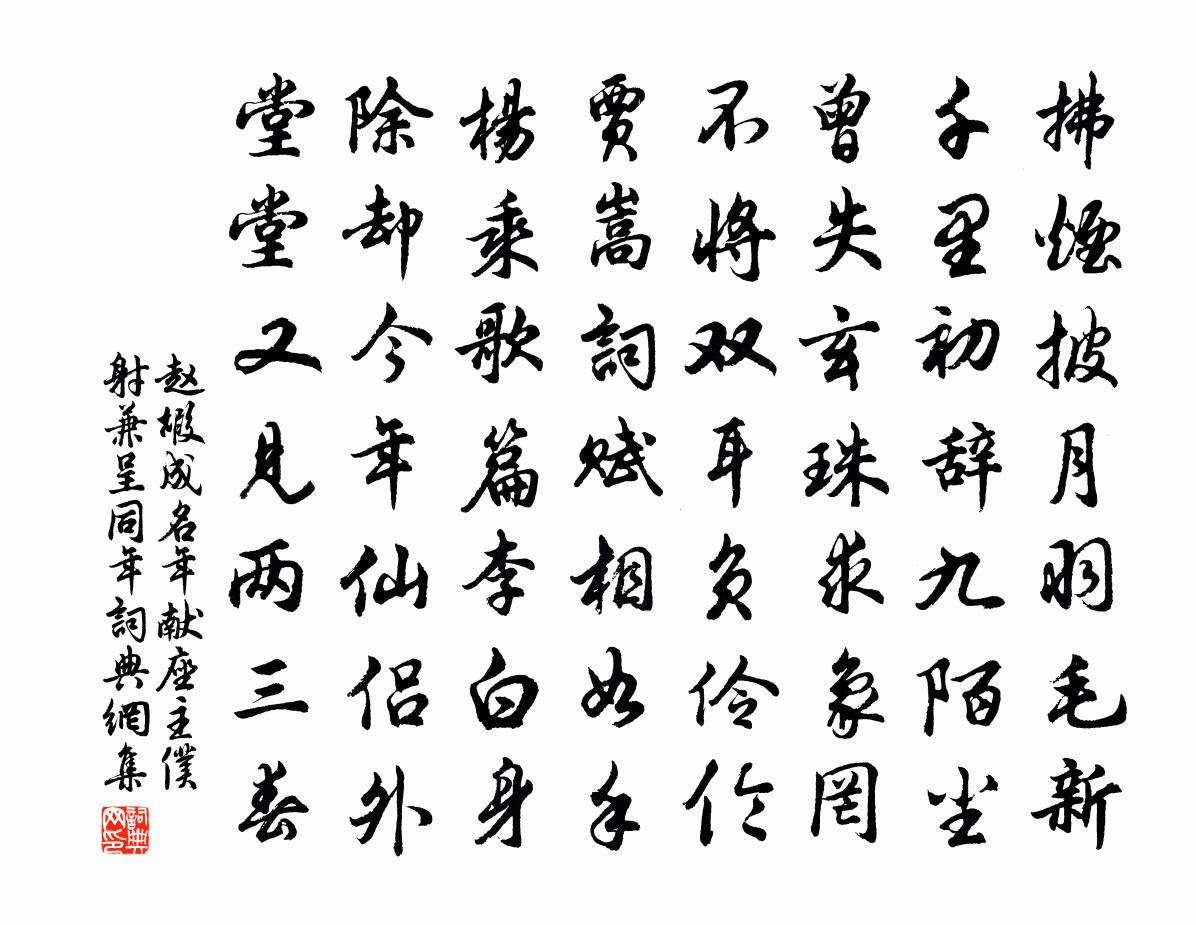 拂煙披月羽毛新
千里初辞九陌尘
曾失玄珠求象罔
不将双耳负伶伦
賈嵩詞赋相如手
楊乘歌篇李白身
除却今年仙侣外
堂堂又見两三春
赵嘏成名年献座主僕
射兼呈同年詞典網集
詞典网印